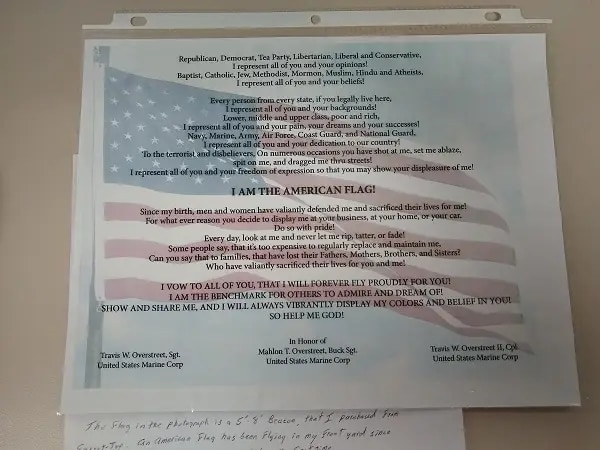 Republican, Democrat, Tea Party, Libertarian, Liberal and Conservative,
I represent all of you and your opinions!
Baptist, Catholic, Jew, Methodist, Mormon, Muslim, Hindu and Atheists,
I represent all of you and your beliefs!
Every person from every state, if you legally live here,
I represent all of you and your backgrounds!
Lower, middle and upper class, poor and rich,
I represent all of you and your pain, your dreams and your successes!
Navy, Marine, Army, Air Force, Coast Guard, and National Guard,
I represent all of you and your dedication to our country!
To the terrorist and disbelievers, On numerous occasions you have shot at me, set me ablaze,
spit on me, and dragged me thru streets!
I represent all of you and your freedom of expression so that you may show your displeasure of me!
I AM THE AMERICAN FLAG!
Since my birth, men and women have valiantly defended me and sacrificed their lives for me!
For what ever reason you decide to display me at your business, at your home, or your car.
Do so with pride!
Every day, look at me and never let me rip, tatter, or fade!
Some people say, that it's too expensive to regularly replace and maintain me.
Can you say that to families, that have lost their Fathers, Mothers, Brothers, and Sisters?
Who have valiantly sacrificed their lives for you and me!
I VOW TO ALL OF YOU, THAT I WILL FOREVER FLY PROUDLY FOR YOU!
I AM THE BENCHMARK FOR OTHERS TO ADMIRE AND DREAM OF!
SHOW AND SHARE ME, AND I WILL ALWAYS VIBRANTLY DISPLAY MY COLORS AND BELIEF IN YOU!
SO HELP ME GOD!
Travis W. Overstreet, Sgt.
United States Marine Corp
In Honor of
Mahlon T. Overstreet, Buck Sgt.
United States Marine Corp
Travis W. Overstreet II, Cpl.
United States Marine Corp
The Flag in the photograph is a 5' 8' that I purchased from
An American Flag has been flying in my front yard since